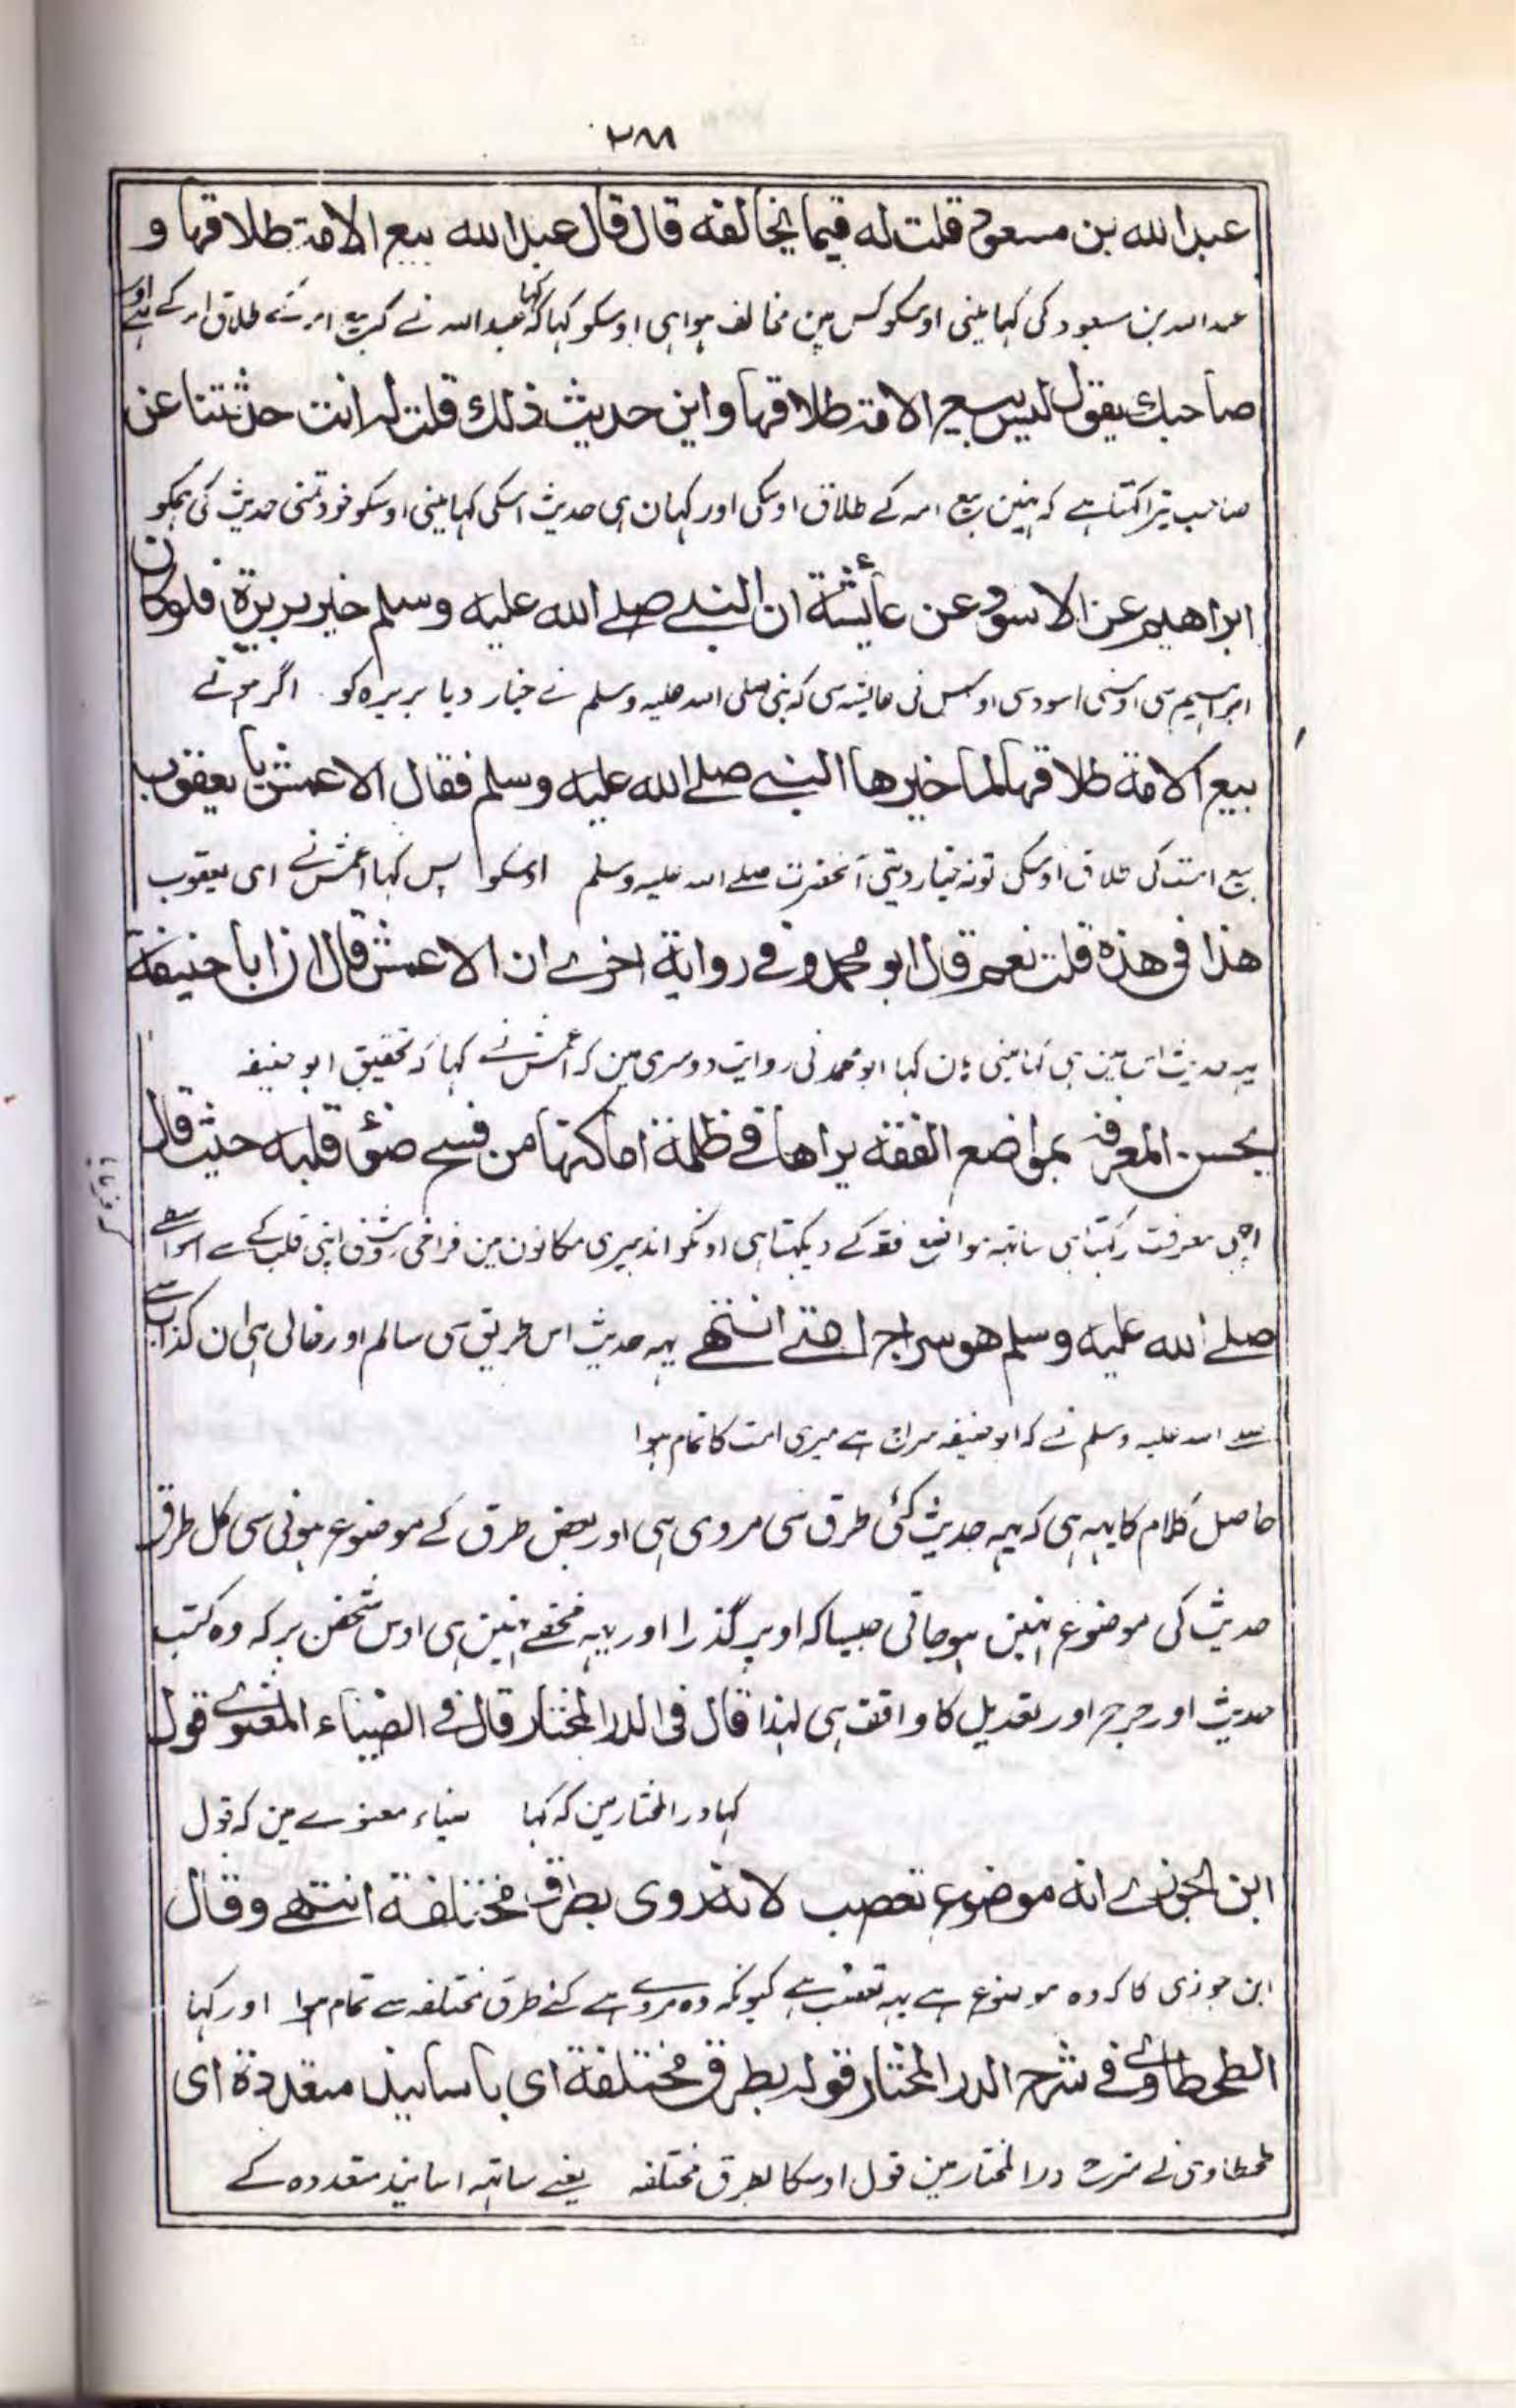 ۲۸۸
عبد الله بن مسعود قلت له فيما يخالفه قال قال عبد الله بيع الامة طلاقها و
عبد اللہ بن مسعود کی کہا مینی اوسکو کس مین مخالف ہوا ہی اوسکو کہا کہا کہ عبد اللہ نے کہ بیع امہ کے طلاق امہ کے ہے اور
صاحبك يقول ليس بيع الامة طلاقها واين حديث ذلك قلت له انت حدثتنا عن
صاحب تیرا کہتا ہے کہ نہین بیع امہ کے طلاق اوسکی اور کہان ہی حدیث اسکی کہا مینی اوسکو خود تمنی حدیث کی ہمکو
ابراهيم عن الاسود عن عائشة ان النبي صلے الله عليه وسلم خير بريرة فلو كان
ابراہیم سی اوسنی اسود سی اوس نی عایشہ سی کہ نبی صلی اللہ علیہ وسلم نے خیار دیا بریرہ کو اگر ہوتے
بيع الامة طلاقها لما خيرها النبے صلے الله عليه وسلم فقال الاعمش يا يعقوب
بیع امت کی طلاق اوسکی تو نہ خیار دیتی آنحضرت صلے اللہ علیہ وسلم اوسکو پس کہا اعمش نے ای یعقوب
هذا فى هذه قلت نعم قال ابو محمد و فے رواية اخرے ان الاعمش قال ان ابا حنيفة
یہہ حدیث اس مین ہی کہا مینی ہان کہا ابو محمد نی روایت دوسری مین کہ اعمش نے کہا کہ تحقیق ابو حنیفہ
يحسن المعرفة بمواضع الفقه يراها فے ظلمة اماكنها من فسح ضوء قلبه حيث قال
اچہی معرفت رکہتا ہی ساتہہ مواضع فقہ کے دیکہتا ہی اونکو اندہیری مکانون مین فراخی روشنی اپنی قلب کے سے
صلے الله عليه وسلم هو سراج امتے انتهے یہہ حدیث اس طریق سی سالم اور خالی ہی ان کذاب سے
صلے اللہ علیہ وسلم نے کہ ابو حنیفہ سراج ہے میری امت کا تمام ہوا
حاصل کلام کا یہہ ہی کہ یہہ حدیث کئی طرق سی مروی ہی اور بعض طرق کے موضوع ہونی سی کل طرق
حدیث کی موضوع نہین ہو جاتی جیسا کہ اوپر گذرا اور یہہ مخفے نہین ہی اوس شخص پر کہ وہ کتب
حدیث اور جرح اور تعدیل کا واقف ہی لہذا قال فى الدر المختار قال فے الضياء المعنوے قول
کہا در المختار مین کہ کہا ضیاء معنوے مین کہ قول
ابن الجوزے انه موضوع تعصب لانه روى بطرق مختلفة انتهے وقال
ابن جوزی کا کہ وہ موضوع ہے یہہ تعصب ہے کیونکہ وہ مروے ہے کئے طرق مختلفہ سے تمام ہوا اور کہا
الطحطاوے فے شرح الدر المختار قوله بطرق مختلفة اى باسانيد متعددة اى
طحطاوی نے شرح در المختار مین قول اوسکا بطرق مختلفہ یعنے ساتہہ اسانید متعددہ کے